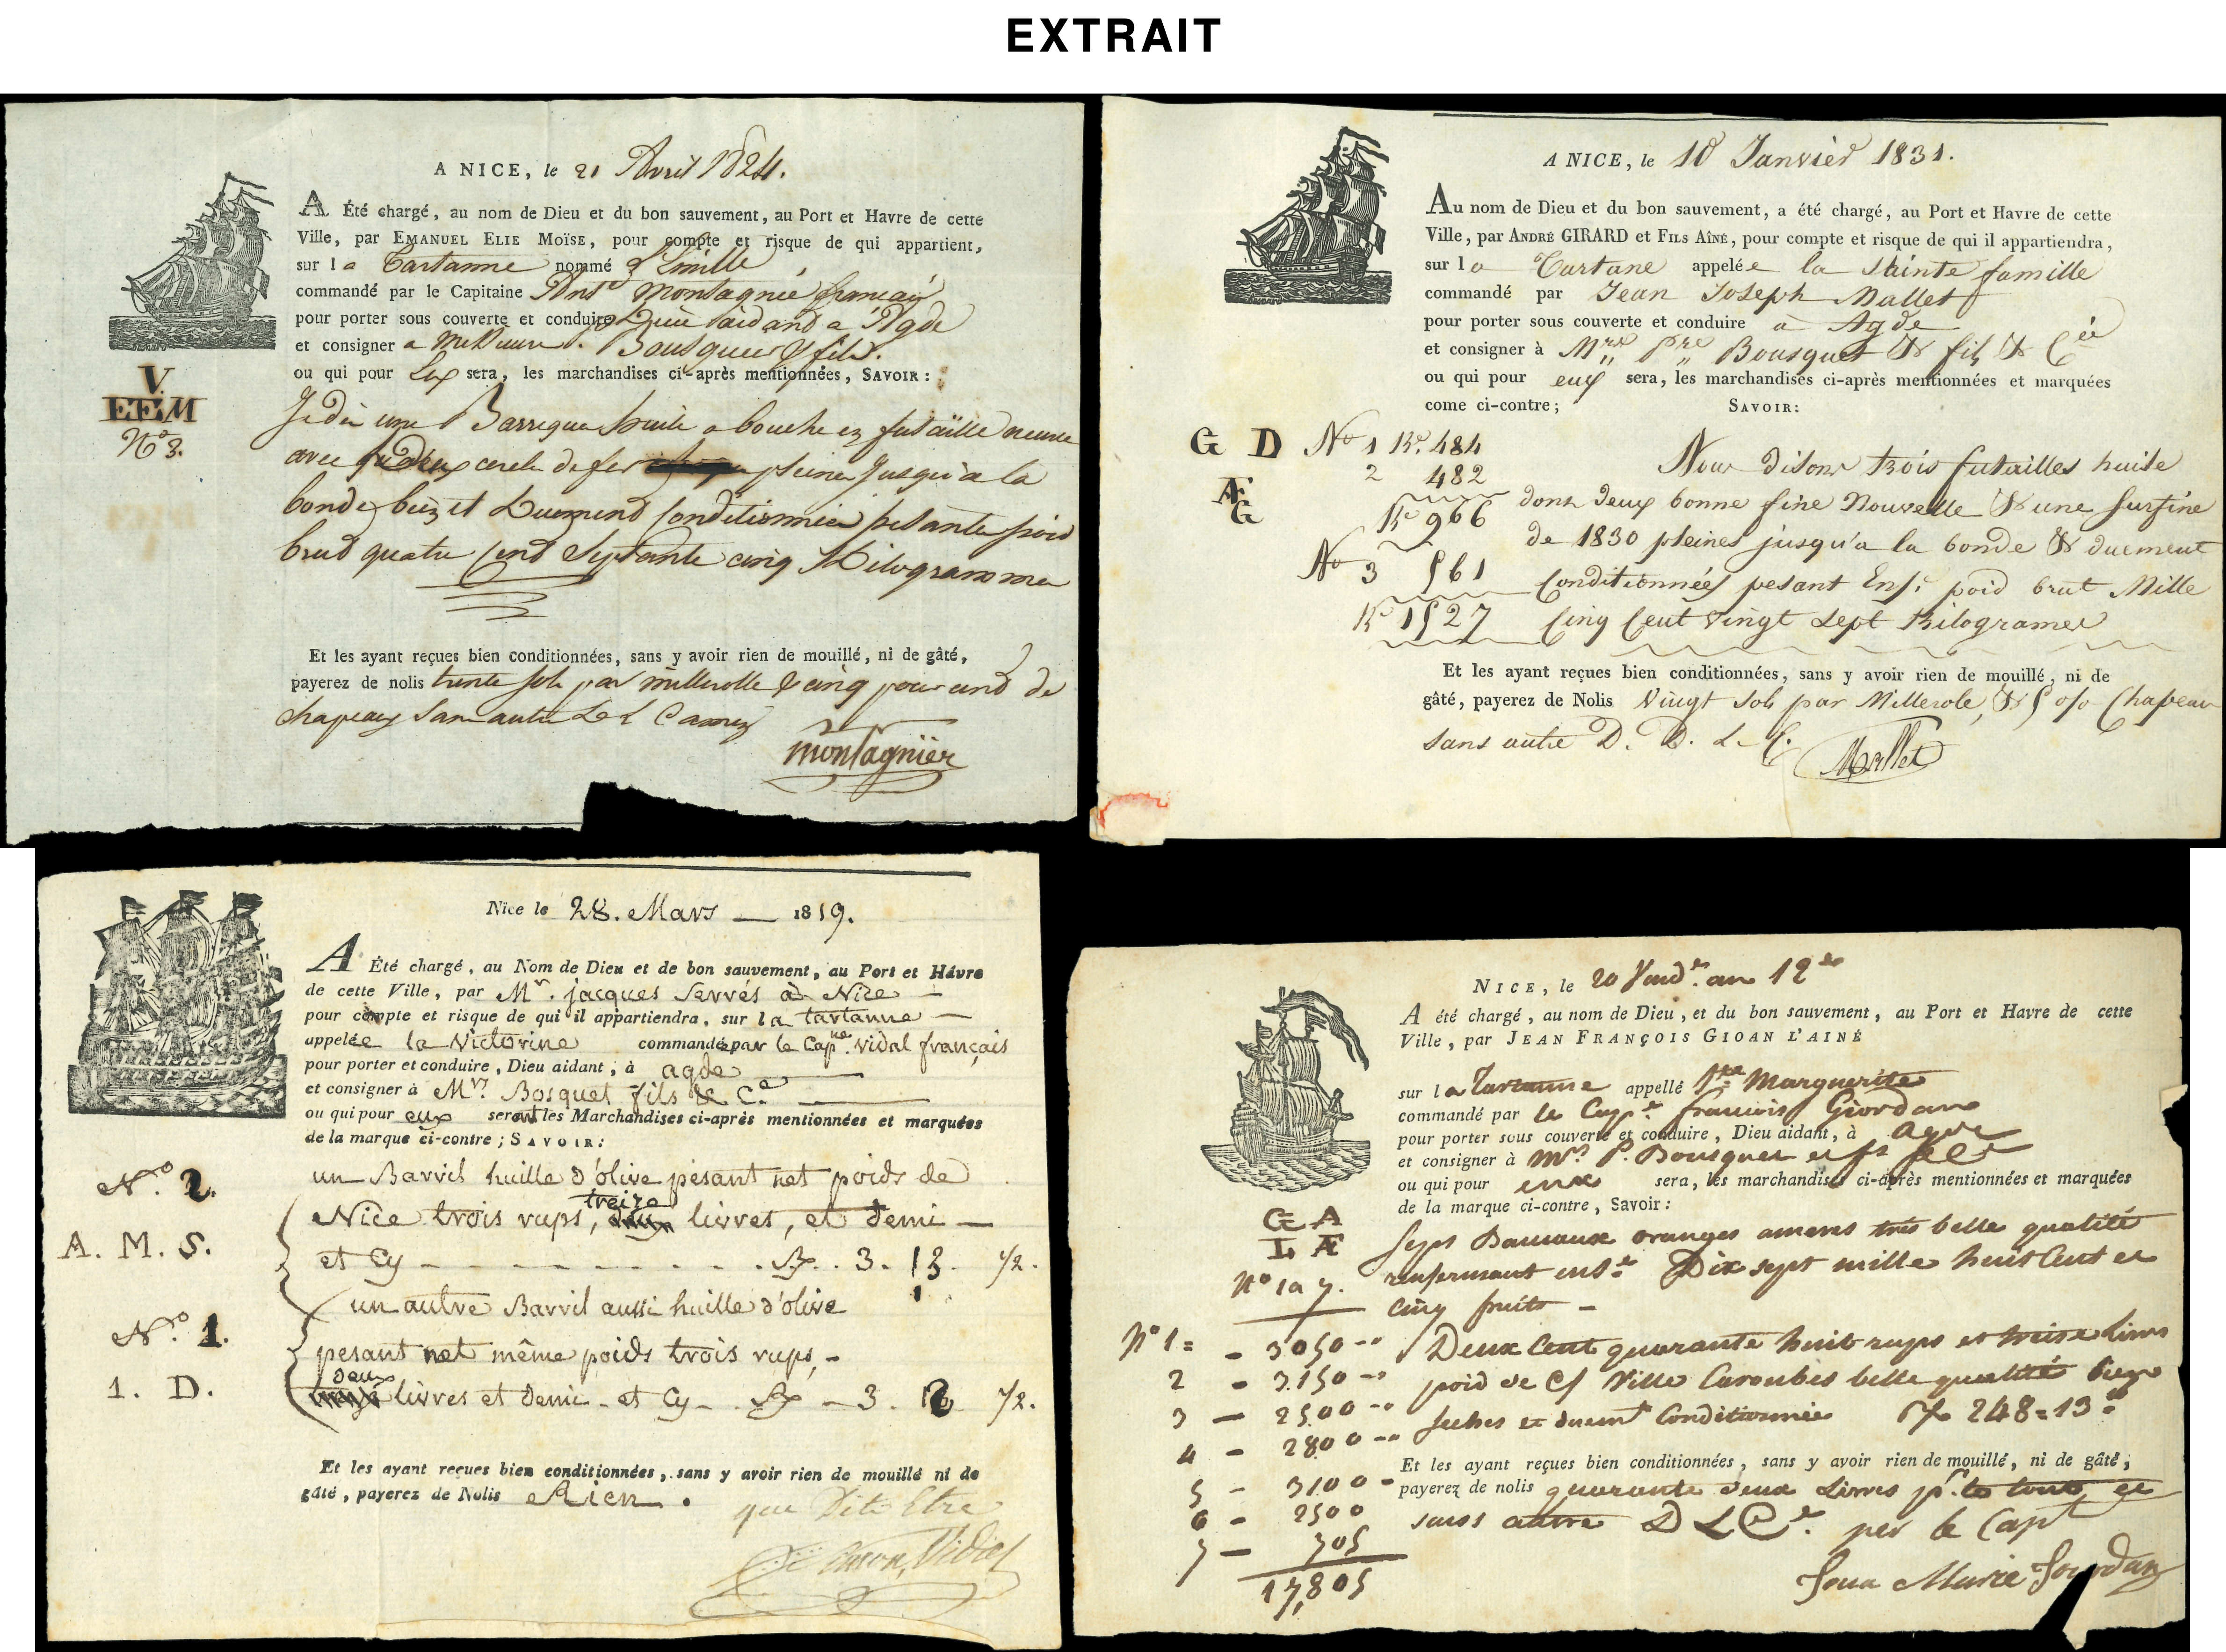 EXTRAIT
A NICE, le 21 Avril 1824.
A Été chargé, au nom de Dieu et du bon sauvement, au Port et Havre de cette
Ville, par EMANUEL ELIE MOÏSE, pour compte et risque de qui appartient,
sur la Tartanne nommé
commandé par le Capitaine Montagnié français
pour porter sous couverte et conduire Dieu aidant a Agde
et consigner a Bousquet & fils.
ou qui pour Eux sera, les marchandises ci-après mentionnées, SAVOIR:
V.
EEM
N° 3.
Je dis une Barrique huile a bouche en futaille neuve
avec cercle de fer pleine jusqu'a la
bonde bien et Duement Conditionnée pesante poid
brud quatre Cend Septante cinq Kilogramme
Et les ayant reçues bien conditionnées, sans y avoir rien de mouillé, ni de gâté,
payerez de nolis trente sols par millerolle & cinq pour cend de
chapeau San autre
Montagnier
A NICE, le 10 Janvier 1831.
Au nom de Dieu et du bon sauvement, a été chargé, au Port et Havre de cette
Ville, par ANDRÉ GIRARD et FILS AÎNÉ, pour compte et risque de qui il appartiendra,
sur la Tartane appelée la Sainte famille
commandé par Jean Joseph Mallet
pour porter sous couverte et conduire à Agde
et consigner à Mrs Pre Bousquet & fils & Cie
ou qui pour eux sera, les marchandises ci-après mentionnées et marquées
come ci-contre; SAVOIR:
G D No 1 Ko. 484
2 482
Ko 966
No 3 561
Ko 1527
Nous disons trois futailles huile
dont deux bonne fine Nouvelle & une surfine
de 1830 pleines jusqu'a la bonde & duement
Conditionnées pesant Ens. poid brut Mille
Cinq Cent Vingt Sept Kilogrames
Et les ayant reçues bien conditionnées, sans y avoir rien de mouillé, ni de
gâté, payerez de Nolis Vingt Sols par Millerole, & 5 o/o Chapeau
sans autre D. D. L. C.
Mallet
Nice le 28. Mars 1819.
A Été chargé, au Nom de Dieu et de bon sauvement, au Port et Hávre
de cette Ville, par Mr. jacques Serrés à Nice
pour compte et risque de qui il appartiendra, sur la tartanne
appelée la Victorine commandée par le Capne. vidal français
pour porter et conduire, Dieu aidant, à agde
et consigner à Mrs. Bosquet fils & Ce
ou qui pour eux seront les Marchandises ci-après mentionnées et marquées
de la marque ci-contre; SAVOIR:
N.° 2.
A. M. S.
un Barril huille d'olive pesant net poids de
Nice trois rups, treize livres, et demi
et Cy 3. 13. 1/2.
N.° 1.
1. D.
un autre Barril aussi huille d'olive
pesant net même poids trois rups,
deux livres et demie et Cy 3. 2 1/2.
Et les ayant reçues bien conditionnées, sans y avoir rien de mouillé ni de
gâté, payerez de Nolis Rien.
que Dit Etre
Vidal
NICE, le 20 Vend.re an 12
A été chargé, au nom de Dieu, et du bon sauvement, au Port et Havre de cette
Ville, par JEAN FRANÇOIS GIOAN L'AINÉ
sur la Tartanne appellé Ste Marguerite
commandé par le Cape. francois Giordan
pour porter sous couverte et conduire, Dieu aidant, à agde
et consigner à Mrs P. Bousquet et
ou qui pour eux sera, les marchandises ci-après mentionnées et marquées
de la marque ci-contre, Savoir:
G A
L Æ
N° 1 a 7.
Sept oranges ameres très belle qualité
renfermant ens.e Dix sept mille huit Cent et
cinq fruits
N° 1 = 3050
2 - 3150
3 - 2500
4 - 2800
5 - 3100
6 - 2500
7 - 705
17,805
Deux Cent quarante huit rups et treize livres
poid de Cs Ville Caroubes belle qualité bien
seches et duemt Conditionnée 248=13
Et les ayant reçues bien conditionnées, sans y avoir rien de mouillé, ni de gâté,
payerez de nolis quarante deux Livres pr. le tout et
sans autre per le Capt